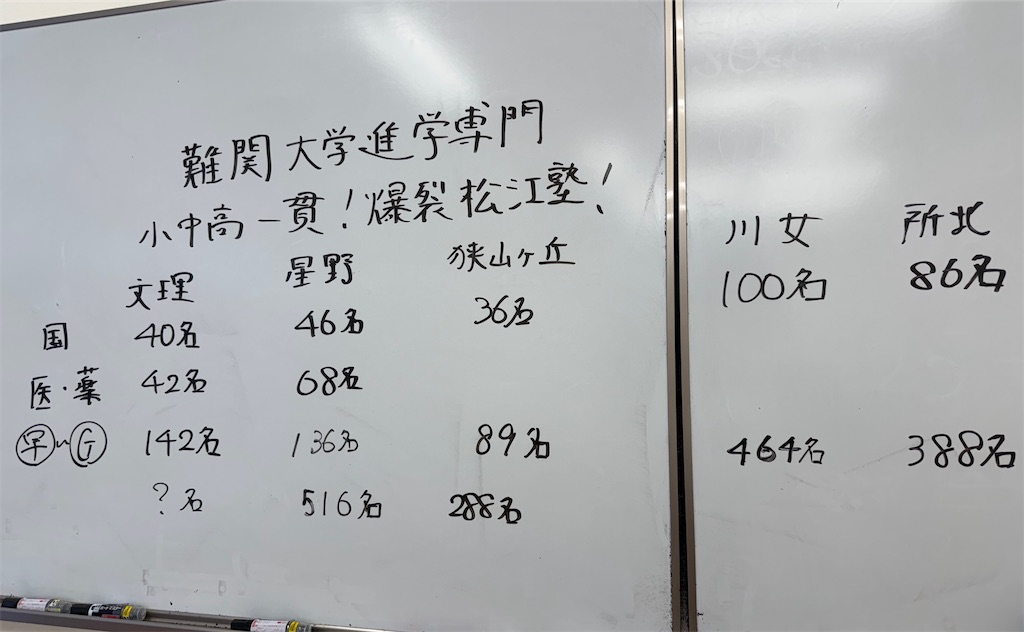 難関大学進学専門
小中高一貫!爆裂松江塾!
文理 星野 狭山ヶ丘 川女 所北
国 40名 46名 36名 100名 86名
医・薬 42名 68名
早~G 142名 136名 89名 464名 388名
?名 516名 288名